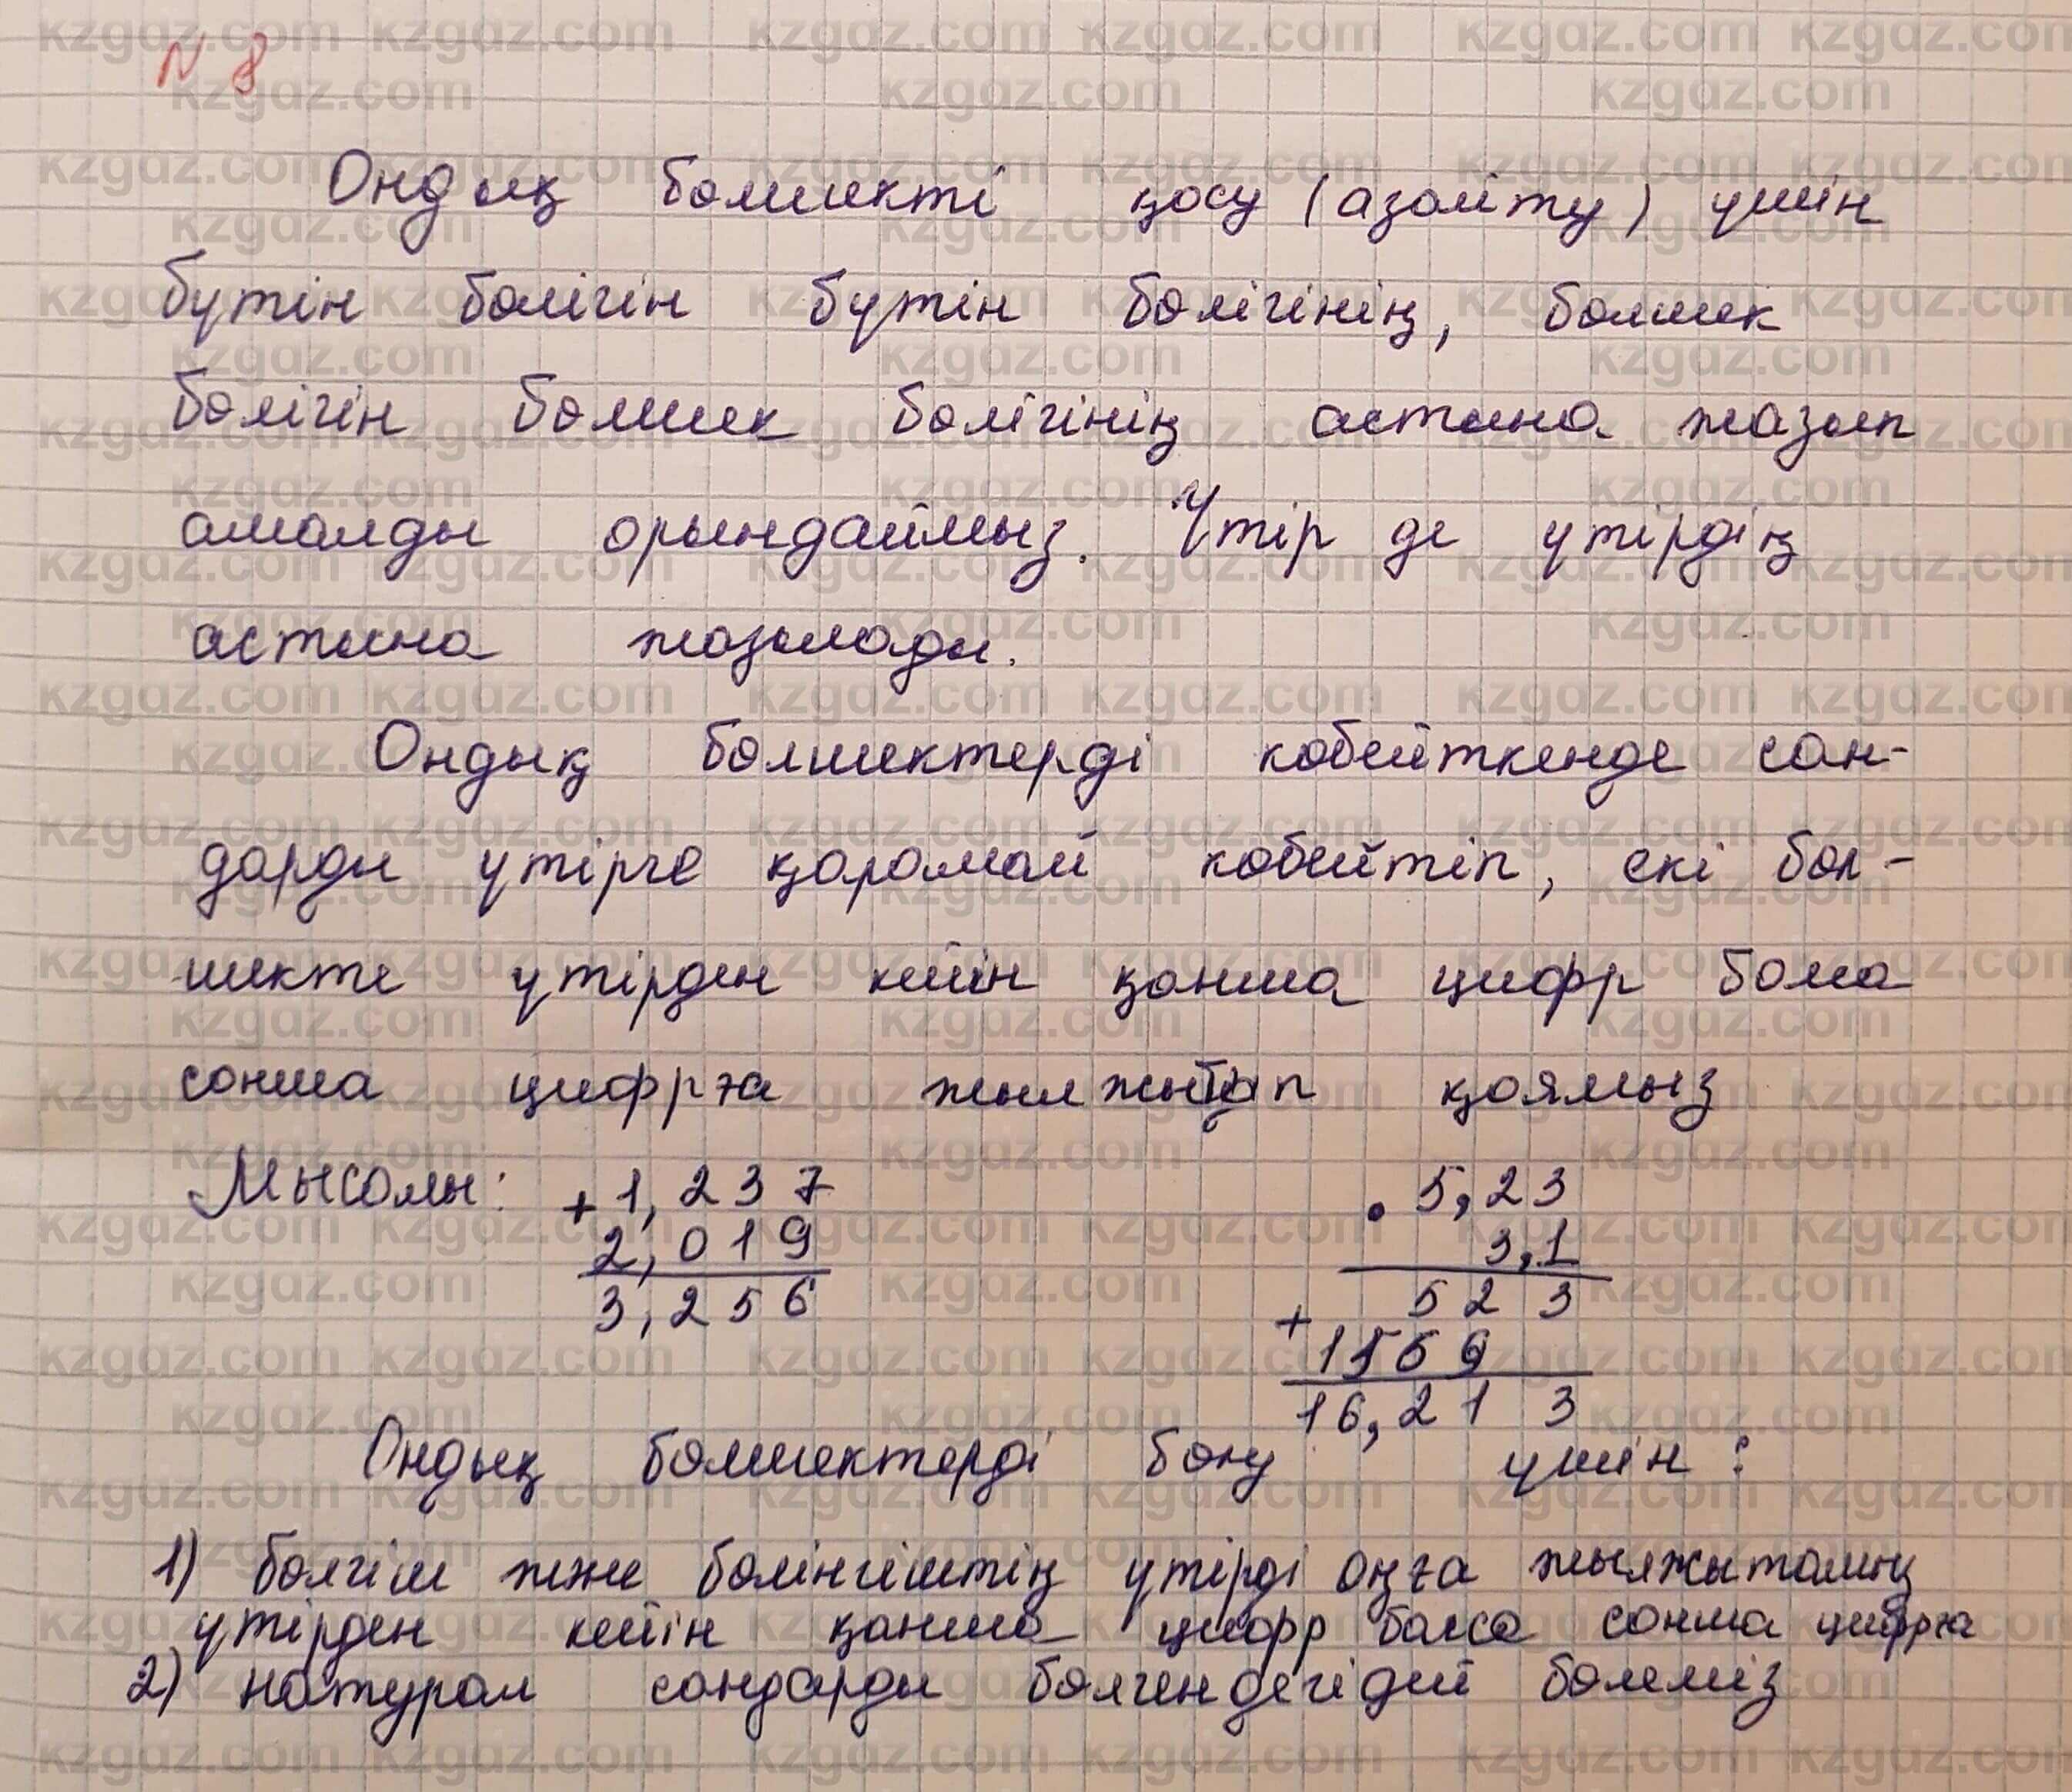 N 8
Ондық бөлшекті қосу (азайту) үшін
бүтін бөлігін бүтін бөлігінің, бөлшек
бөлігін бөлшек бөлігінің астына жазып
амалды орындаймыз. Үтір де үтірдің
астына жазылады.
Ондық бөлшектерді көбейткенде сан-
дарды үтірге қарамай көбейтіп, екі бөл-
шекте үтірден кейін қанша цифр бола
сонша цифрға жылжытып қоямыз
Мысалы: + 1,237 • 5,23
2,019 3,1
3,256 523
+ 1569
16,213
Ондық бөлшектерді бөлу үшін:
1) бөлгіш және бөлінгіштің үтірді оңға жылжытамыз
үтірден кейін қанша цифр болса сонша цифрға
2) натурал сандарды бөлгендегідей бөлеміз
kzgdz.com